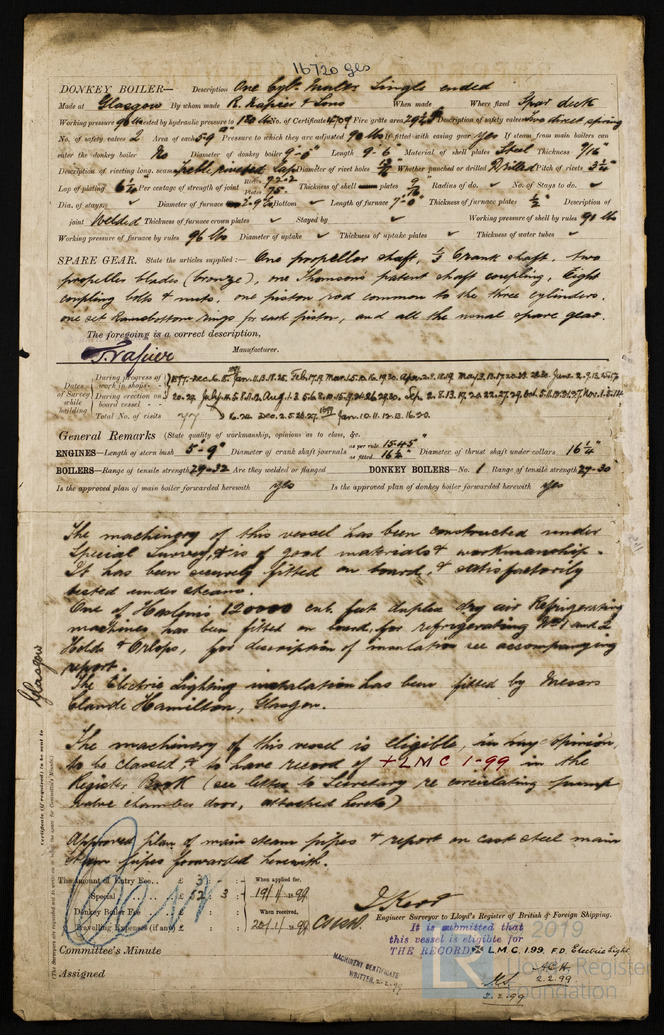 16720 Gls
DONKEY BOILER— Description One Cyl. Multr Single ended
Made at Glasgow By whom made R. Napier & Sons When made Where fixed Spar deck
Working pressure 90 lb tested by hydraulic pressure to 180 lb No. of Certificate Fire grate area Description of safety valves two direct spring
No. of safety valves 2 Area of each 5.9 Pressure to which they are adjusted 90 lb If fitted with easing gear yes If steam from main boilers can
enter the donkey boiler No Diameter of donkey boiler 9'-0" Length 9'-6" Material of shell plates Steel Thickness 9/16"
Description of riveting long. seam treble riveted Lap Diameter of rivet holes Whether punched or drilled Drilled Pitch of rivets 3 3/4"
Lap of plating 6 1/4" Per centage of strength of joint Rivets Plates 75 Thickness of shell plates 9/16 Radius of do. ✓ No. of Stays to do. ✓
Dia. of stays ✓ Diameter of furnace 2'-9 1/2" Bottom ✓ Length of furnace 7'-0" Thickness of furnace plates 1/2" Description of
joint Welded Thickness of furnace crown plates ✓ Stayed by ✓ Working pressure of shell by rules 90 lb
Working pressure of furnace by rules 96 lb Diameter of uptake ✓ Thickness of uptake plates ✓ Thickness of water tubes ✓
SPARE GEAR. State the articles supplied:— One propellor shaft, 1/3 Crank shaft, two
propeller blades (bronze), one Thomson's patent shaft coupling, Eight
coupling bolts & nuts, one piston rod common to the three cylinders,
one set Ramsbottom rings for each piston, and all the usual spare gear.
The foregoing is a correct description,
Manufacturer.
Dates of Survey while building
During progress of work in shops—
During erection on board vessel—
Total No. of visits 77
General Remarks (State quality of workmanship, opinions as to class, &c.
ENGINES—Length of stern bush 5'-9" Diameter of crank shaft journals as per rule 15.45" as fitted 16 1/4" Diameter of thrust shaft under collars 16 1/4"
BOILERS—Range of tensile strength 29-32 Are they welded or flanged DONKEY BOILERS—No. 1 Range of tensile strength 27-30
Is the approved plan of main boiler forwarded herewith yes Is the approved plan of donkey boiler forwarded herewith yes
The machinery of this vessel has been constructed under
Special Survey, & is of good materials & workmanship.
It has been securely fitted on board, & satisfactorily
tested under steam.
One of Haslam's 120000 cub. feet duplex dry air Refrigerating
machines has been fitted on board, for refrigerating Nos 1 and 2
Holds & Orlops, for description of insulation see accompanying
report.
The Electric Lighting instalation has been fitted by Messrs
Claude Hamilton, Glasgow.
The machinery of this vessel is eligible, in my opinion,
to be classed, & to have record of + L M C 1-99 in the
Register Book (see letter to Secretary re circulating pump
valve chamber door, attached hereto)
Approved plan of main steam pipes & report on cast steel main
steam pipes forwarded herewith.
Glasgow
Certificate (if required) to be sent to
(The Surveyors are requested not to write on or below the space for Committee's Minute.)
The amount of Entry Fee.. £ 3 : :
Special .. £ 52 : 3 :
Donkey Boiler Fee .. £ : :
Travelling Expenses (if any) £ : :
When applied for,
19/1/99
When received,
20/1/99
Engineer Surveyor to Lloyd's Register of British & Foreign Shipping.
It is submitted that
this vessel is eligible for
THE RECORD + L.M.C. 1.99. F.D. Electric Light.
2.2.99
2.2.99
Committee's Minute
Assigned
MACHINERY CERTIFICATE
WRITTEN 2.2.99
2019
Lloyd's Register
Foundation
LR